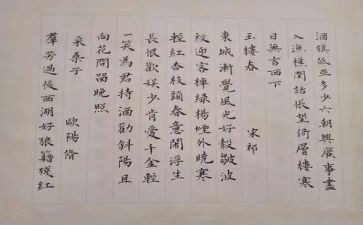 酒旗低亞多少六朝興廢事盡
入漁樵閒話悵望倚層樓寒
日無言西下
玉樓春 宋祁
東城漸覺風光好縠皺波
紋迎客棹綠楊煙外曉寒
輕紅杏枝頭春意鬧浮生
長恨歡娛少肯愛千金輕
一笑為君持酒勸斜陽且
向花間留晚照
采桑子 歐陽脩
羣芳過後西湖好狼籍殘紅